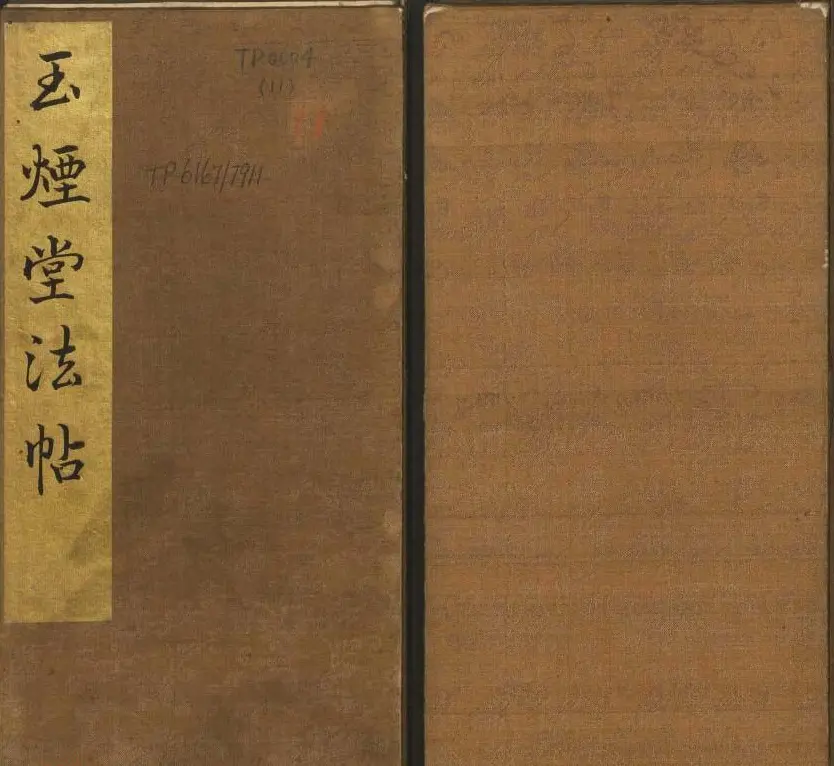 玉煙堂法帖
TP0004
(11)
TP 6167/7911